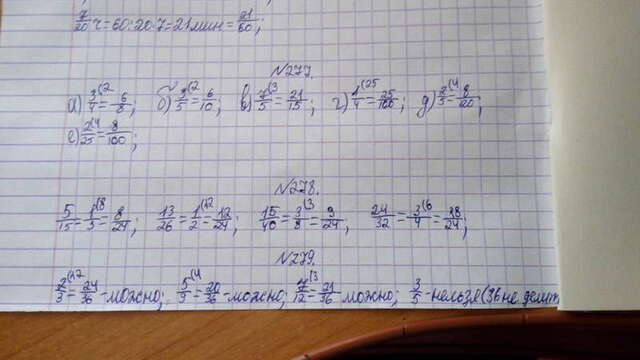 7/20 ч = 60:20·7=21 мин = 21/60;
№277.
а) 3/4 (2 = 6/8; б) 3/5 (2 = 6/10; в) 7/5 (3 = 21/15; г) 1/4 (25 = 25/100; д) 2/5 (4 = 8/20;
е) 2/25 (4 = 8/100;
№278.
5/15 = 1/3 (8 = 8/24; 13/26 = 1/2 (12 = 12/24; 15/40 = 3/8 (3 = 9/24; 24/32 = 3/4 (6 = 18/24;
№279.
2/3 (12 = 24/36 - можно; 5/9 (4 = 20/36 - можно; 7/12 (3 = 21/36 можно; 3/5 - нельзя (36 не делит